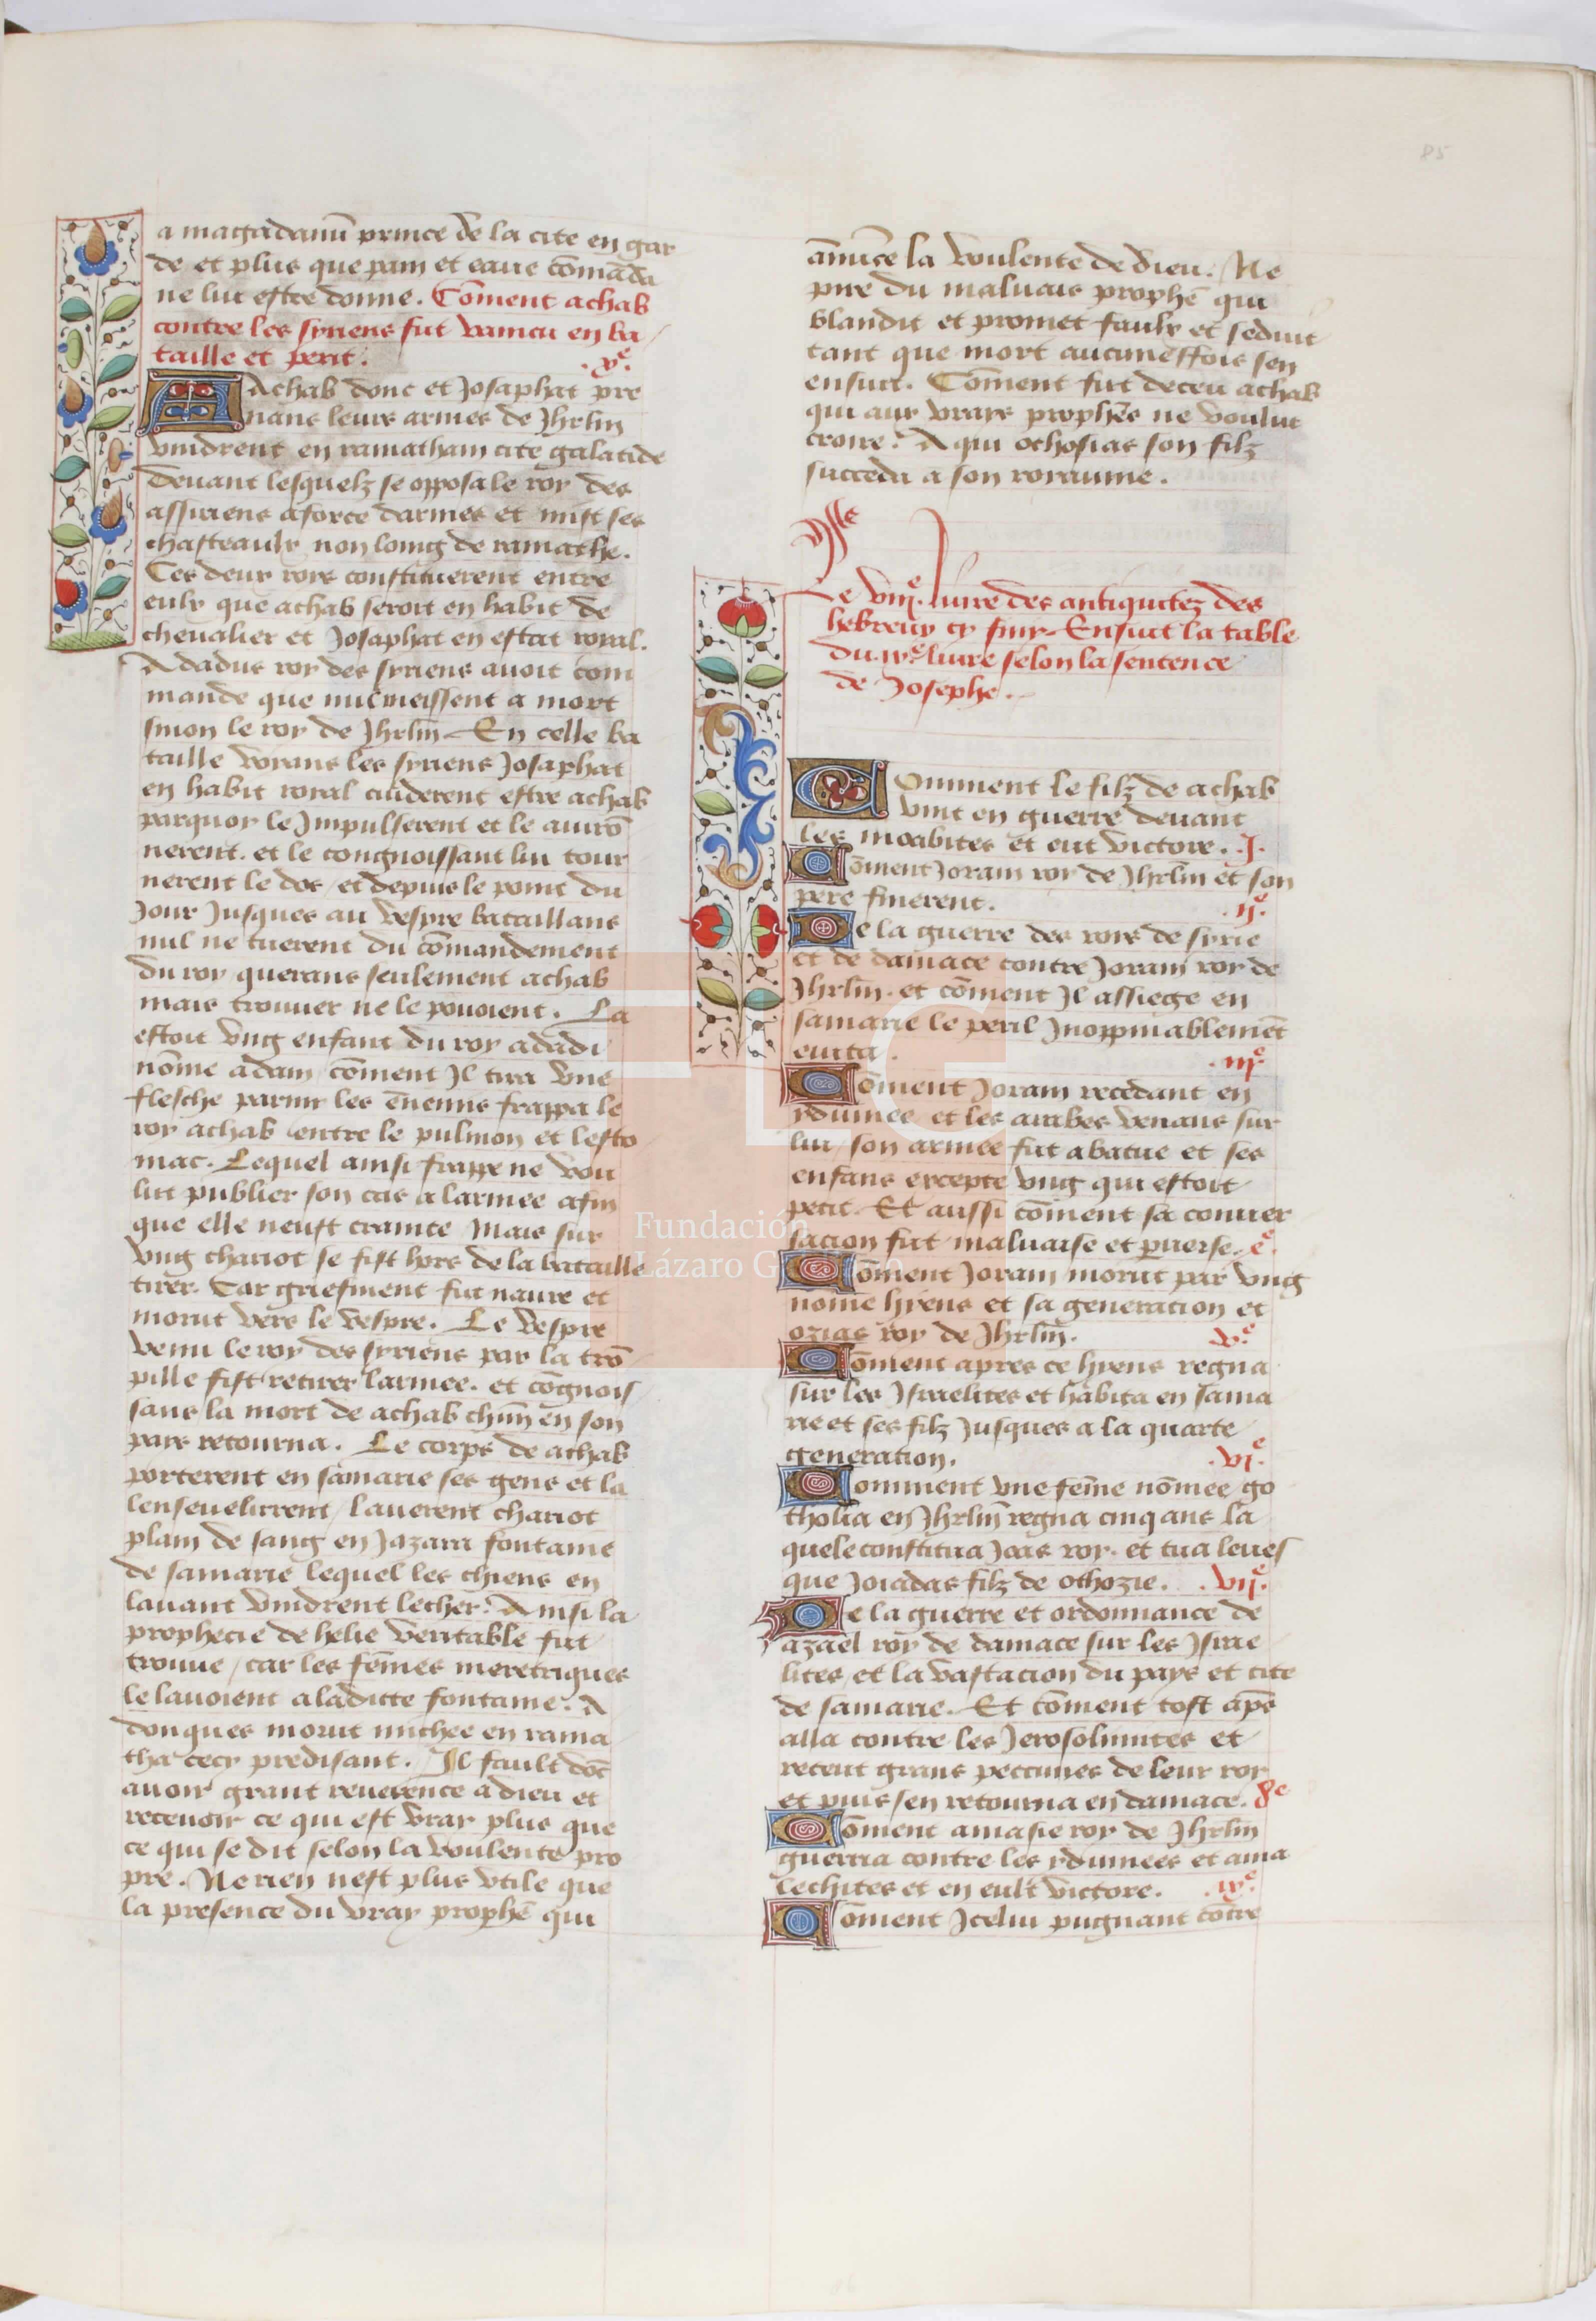 85
a magadanū prince de la cite en gar
de et plus que pain et eaue cōmāda
ne lui estre donne. Cōment achab
contre les syriens fut vaincu en ba
taille et perit. .xve.
Achab donc et Josaphat pre
nans leurs armes de Jhrlm
vindrent en ramatham cite galatide
Deuant lesquelz se opposa le roy des
assiriens a force darmes et mist ses
chasteaulx non loing de ramathe.
Ces deux roys constituerent entre
eulx que achab seroit en habit de
cheualier et Josaphat en estat royal.
Adadus roy des syriens auoit com
mande que nul meissent a mort
sinon le roy de Jhrlm. En celle ba
taille voyans les syriens Josaphat
en habit royal cuiderent estre achab
parquoy le Jmpulserent et le auirō
nerent. et le congnoissant lui tour
nerent le dos / et depuis le point du
Jour Jusques au vespre bataillans
nul ne tuerent du cōmandement
du roy querans seulement achab
mais trouuer ne le pouoient. La
estoit vng enfant du roy adadi
nōme adam / cōment Jl tira vne
flesche parmy les ēnemis frappa le
roy achab entre le pulmon et lesto
mac. Lequel ainsi frappe ne vou
lut publier son cas a larmee afin
que elle neust crainte Mais sur
vng chariot se fist hors de la bataille
tirer. Car griefment fut naure et
morut vers le vespre. Le vespre
venu le roy des syriens par la trō
pille fist retirer larmee. et cōgnois
sans la mort de achab chūn en son
pais retourna. Le corps de achab
porterent en samarie ses gens et la
lenseuelirrent / lauerent chariot
plain de sang en Jazara fontaine
de samarie lequel les chiens en
lauant vindrent lecher. Ainsi la
prophecie de helie veritable fut
trouue / car les fēmes meretriques
le lauoient a ladicte fontaine. A
donques morut michee en rama
tha cecy predisant. Jl fault dōc
auoir grant reuerence a dieu et
receuoir ce qui est vray plus que
ce qui se dit selon la voulente pro
pre. Ne rien nest plus vtile que
la presence du vray prophē qui
ānūce la voulente de dieu. Ne
pire du maluais prophē qui
blandit et promet faulx et seduit
tant que mort aucuneffois sen
ensuit. Cōment fut deceu achab
qui aux vrays prophēs ne voulut
croire. A qui othosias son filz
succeda a son royaume.
Le viije. liure des antiquitez des
hebreux cy finy. Ensuit la table
du ixe. liure selon la sentence
de Josephe.
Comment le filz de achab
vint en guerre deuant
les moabites et eut victore. .J.
Cōment Joram roy de Jhrlm et son
pere finerent. .ije.
De la guerre des roys de syrie
et de damace contre Joram roy de
Jhrlm. et cōment Jl assiege en
samarie le peril Jnoppinablemēt
euita. .iije.
Cōment Joram recedant en
ydumee et les arabes venans sur
lui / son armee fut abatue et ses
enfans excepte vng qui estoit
petit. Et aussi cōment sa conuer
sacion fut maluaise et peruerse.
Cōment Joram morut par vng
nōme hyeus et sa generation et
ozias roy de Jhrlm. .ve.
Cōment apres ce hyeus regna
sur les Jsraelites et habita en sama
rie et ses filz Jusques a la quarte
generation. .vie.
Comment vne fēme nōmee go
tholia en Jhrlm regna cinq ans la
quele constitua Joas roy. et tua leues
que Joiadas filz de othozie. .vije.
De la guerre et ordonnance de
azael roy de damace sur les Jsrae
lites / et la vastacion du pays et cite
de samarie. Et cōment tost apēs
alla contre les Jerosolimites et
receut grans peccunes de leur roy
et puis sen retourna en damace. 8e
Cōment amasie roy de Jhrlm
guerria contre les ydumees et ama
lechites et en eult victore. .ixe.
Cōment Jcelui pugnant cōtre
Fundación
Lázaro G